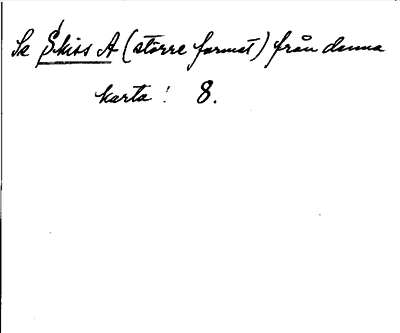 Se Skiss A (större format) från denna
karta: 8.